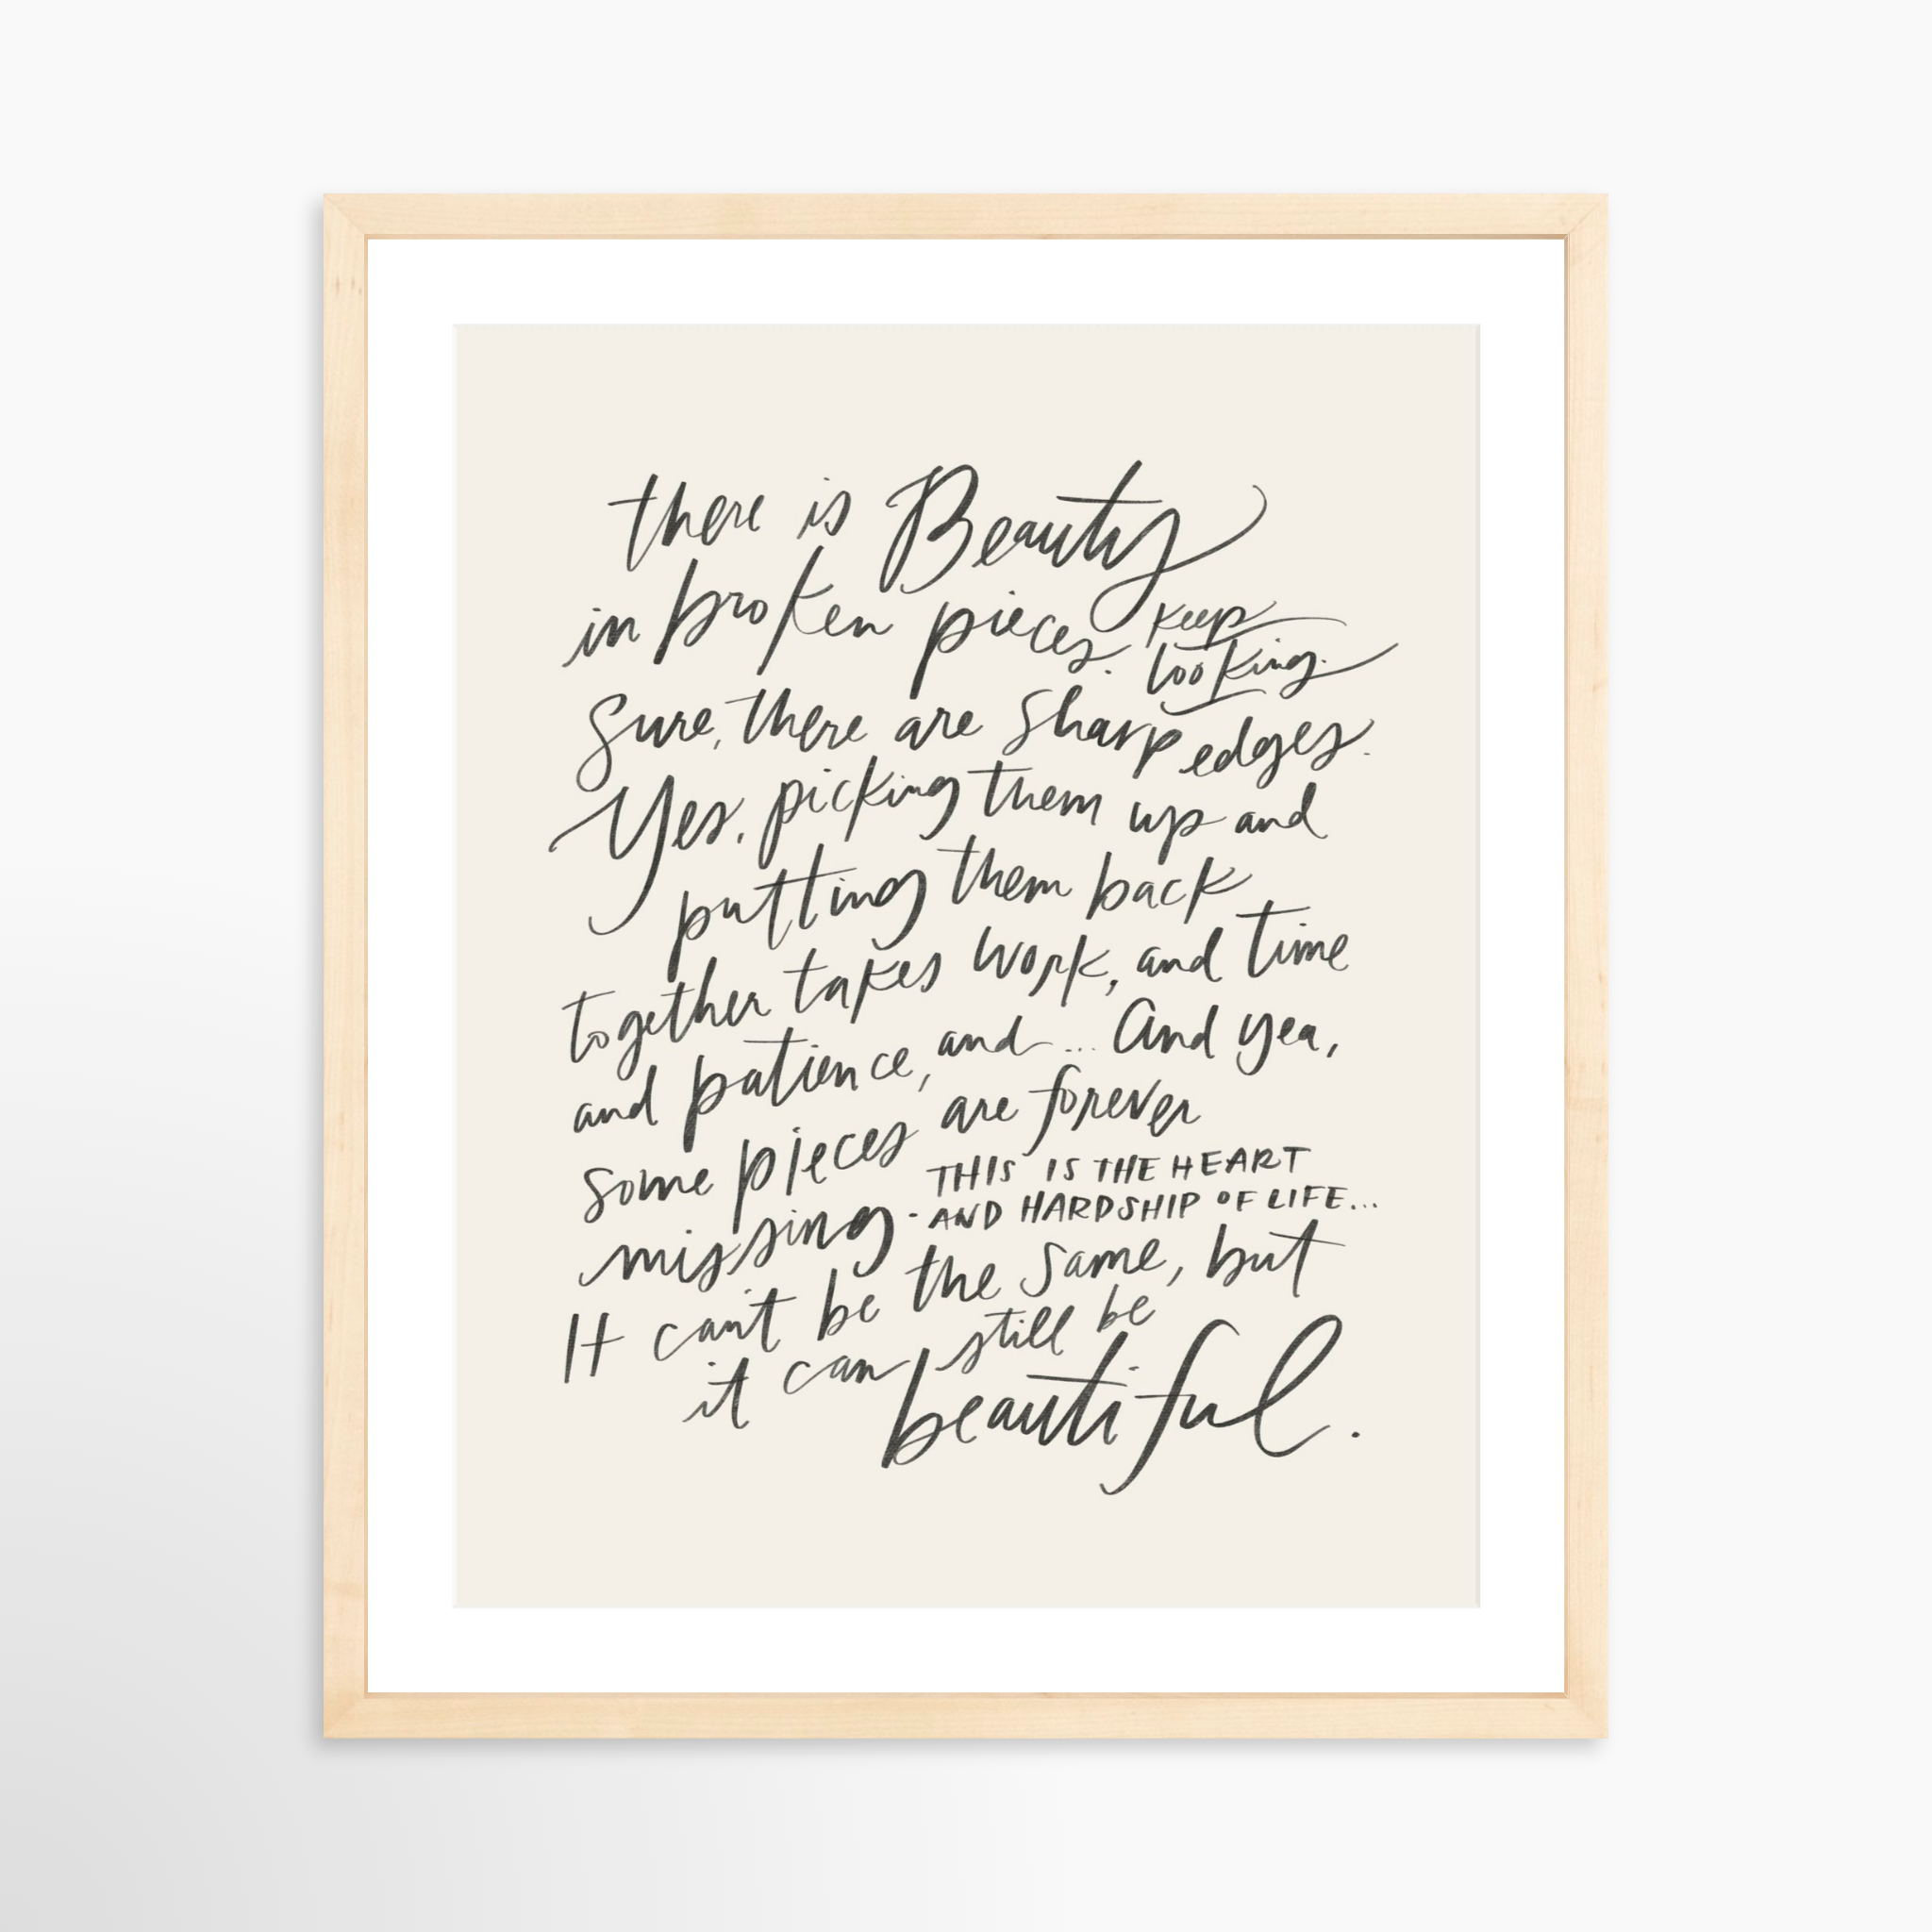 there is Beauty
in broken pieces. keep
looking.
Sure, there are sharp edges.
Yes, picking them up and
putting them back
together takes work, and time
and patience, and... And yea,
some pieces are forever
missing. THIS IS THE HEART
AND HARDSHIP OF LIFE...
It can't be the same, but
it can still be
beautiful.